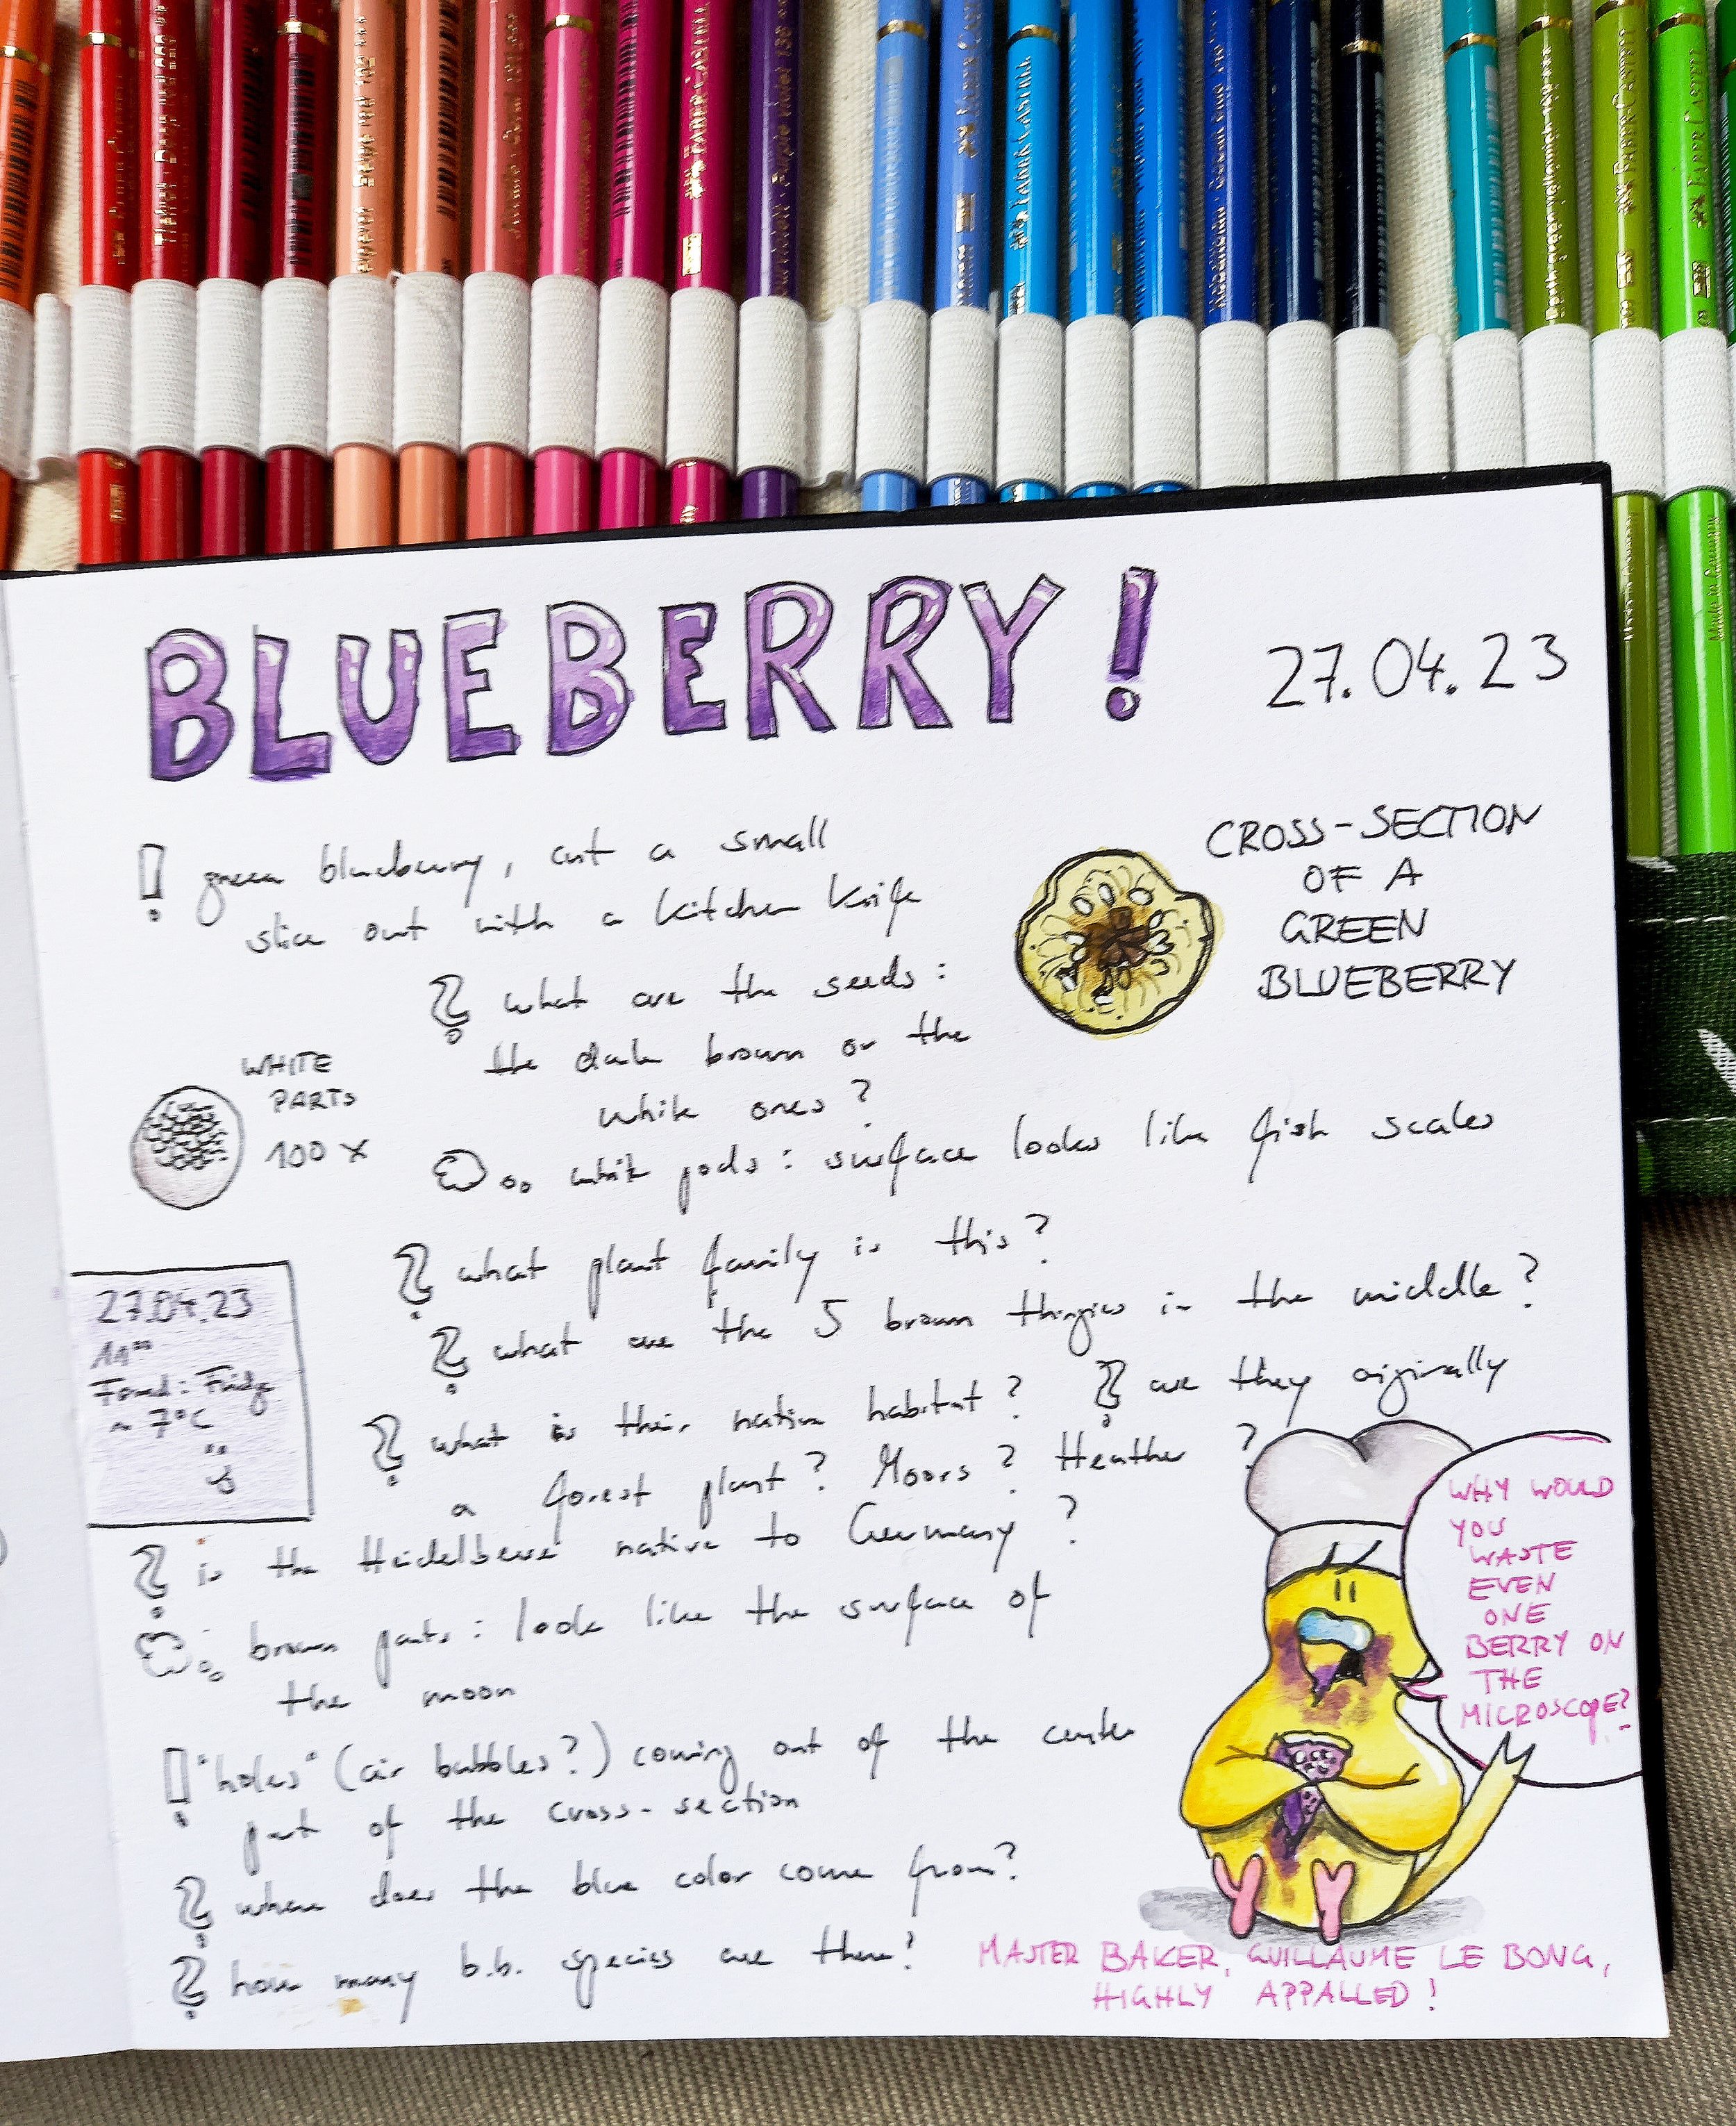 BLUEBERRY!
27.04.23
green blueberry, cut a small
slice out with a kitchen knife
CROSS-SECTION
OF A
GREEN
BLUEBERRY
what are the seeds:
the dark brown or the
white ones?
WHITE
PARTS
100 x
white pods: surface looks like fish scales
what plant family is this?
what are the 5 brown thingies in the middle?
27.04.23
11⁰⁰
Found: Fridge
~ 7°C
what is their native habitat? are they originally
a forest plant? Moors? Heather?
is the Heidelbeere native to Germany?
brown parts: look like the surface of
the moon
"holes" (air bubbles?) coming out of the center
part of the cross-section
where does the blue color come from?
how many b.b. species are there?
WHY WOULD
YOU
WASTE
EVEN
ONE
BERRY ON
THE
MICROSCOPE?
MASTER BAKER, GUILLAUME LE BONG,
HIGHLY APPALLED!